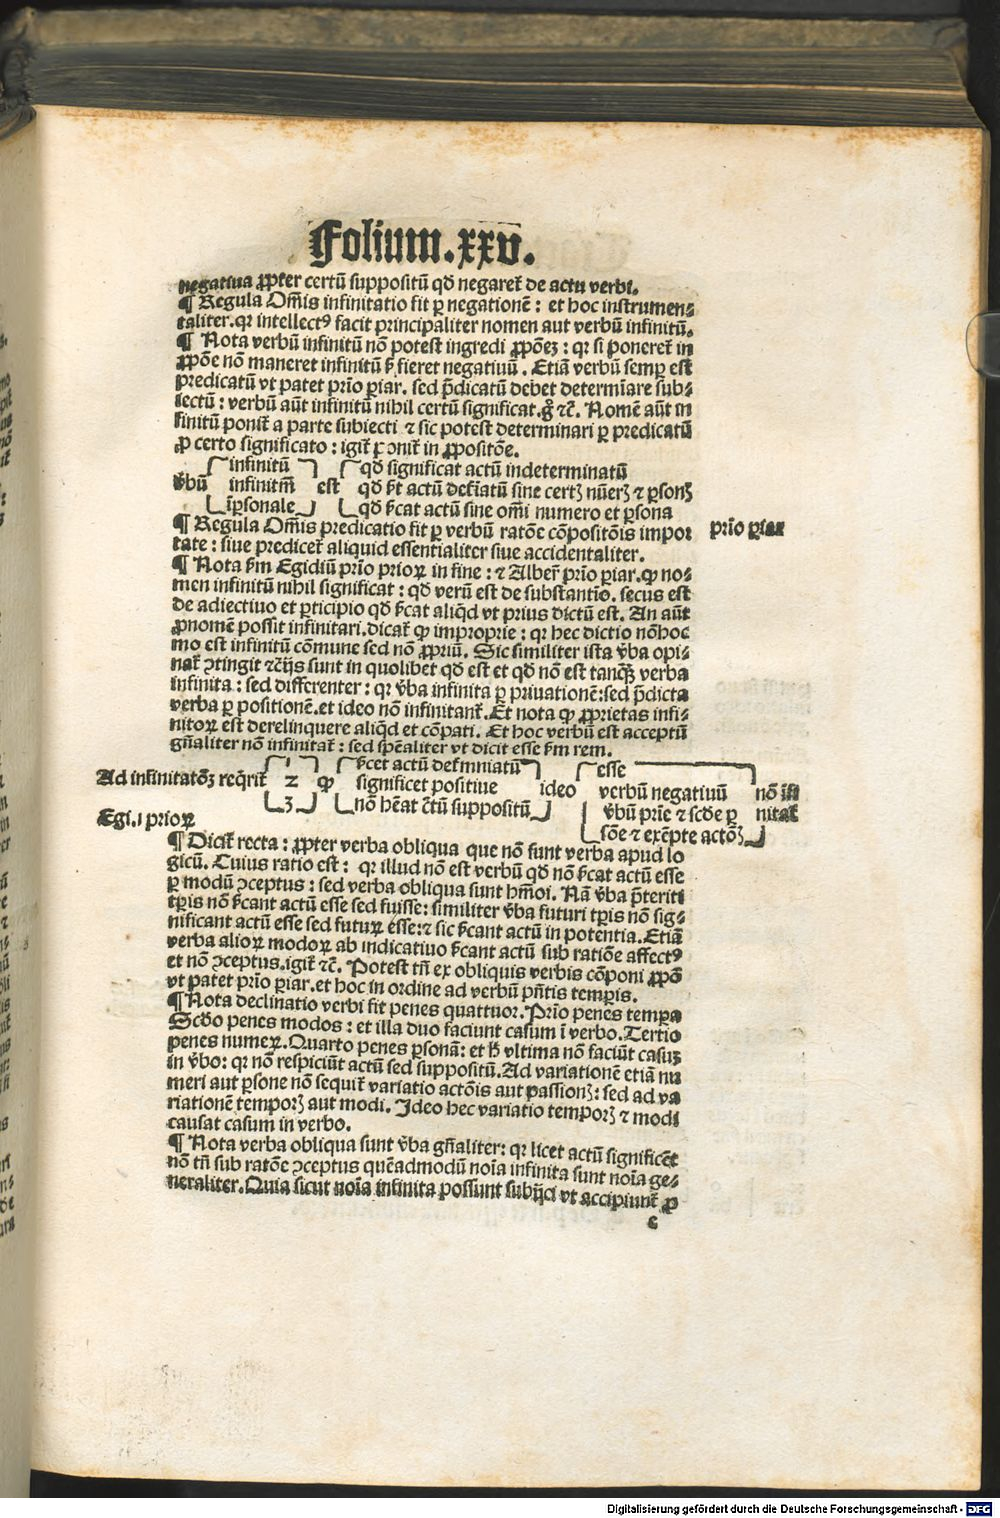 Folium.xxv.
negatiua ꝓpter certū suppositū qḋ negaret᷑ de actu verbi.
¶ Regula Om̄is infinitatio fit ꝑ negationē : et hoc instrumen⸗
taliter.qꝛ intellectꝰ facit principaliter nomen aut verbū infinitū.
¶ Nota verbū infinitū nō potest ingredi ꝓpōeꝫ : qꝛ si poneret᷑ in
ꝓpōe nō maneret infinitū ß fieret negatiuū . Etiā verbū semꝑ est
predicatū vt patet prīo ꝑiar. sed p̄dicatū debet determīare sub⸗
iectū : verbū aūt infinitū nihil certū significat.gͦ ⁊c̄. Nomē aūt in
finitū ponit᷑ a parte subiecti ⁊ sic potest determinari ꝑ predicatū
ꝓ certo significato : igit᷑ ponit᷑ in ꝓpositōe.
infinitū qḋ significat actū indeterminatū
v̄bū infinitm̄ est qḋ ßt actū det᷑iatū sine certꝫ nūerꝫ ⁊ ꝑsonꝫ
īꝑsonale qḋ ßcat actū sine om̄i numero et ꝑsona
¶ Regula Om̄is predicatio fit ꝑ verbū ratōe cōpositōis impoꝛ
prīo ꝑiar
tate : siue predicet᷑ aliquid essentialiter siue accidentaliter.
¶ Nota ßm Egidiū prīo prioꝝ in fine : ⁊ Alber᷑ prīo ꝑiar.ꝙ no⸗
men infinitū nihil significat : qḋ verū est de substantīo. secus est
de adiectiuo et ꝑticipio qḋ ßcat aliqḋ vt prius dictū est. An aūt
ꝓnomē possit infinitari.dicat᷑ ꝙ improprie : qꝛ hec dictio nōhoc
mo est infinitū cōmune sed nō ꝓpriū. Sic similiter ista v̄ba opi⸗
nat᷑ ꝯtingit ⁊c̄ijs sunt in quolibet qḋ est et qḋ nō est tanqꝫ verba
infinita : sed differenter : qꝛ v̄ba infinita ꝑ priuationē:sed p̄dicta
verba ꝑ positionē.et ideo nō infinitant᷑.Et nota ꝙ ꝓprietas infi⸗
nitoꝝ est derelinquere aliqḋ et cōpati. Et hoc verbū est acceptū
gn̄aliter nō infinitat᷑ : sed spēaliter vt dicit esse ßm rem.
1 ßcet actū det᷑mniatū esse
Ad infinitatōꝫ req̄rit᷑ 2 ꝙ significet positiue ideo verbū negatiuū nō īfi
3 nō hēat c̄tū suppositū v̄bū prīe ⁊ scḋe ꝑ nitat᷑
sōe ⁊ exēpte actōꝫ
Egi.i prioꝝ
¶ Dicit᷑ recta : ꝓpter verba obliqua que nō sunt verba apud lo
gicū. Cuius ratio est : qꝛ illud nō est verbū qḋ nō ßcat actū esse
ꝑ modū ꝯceptus : sed verba obliqua sunt hm̄oi. Nā v̄ba p̄teriti
tp̄is nō ßcant actū esse sed fuisse: similiter v̄ba futuri tp̄is nō sig⸗
nificant actū esse sed futuꝝ esse:⁊ sic ßcant actū in potentia.Etiā
verba alioꝝ modoꝝ ab indicatiuo ßcant actū sub ratiōe affectꝰ
et nō ꝯceptus.igit᷑ ⁊c̄. Potest tn̄ ex obliquis verbis cōponi ꝓpō
vt patet prīo ꝑiar.et hoc in ordine ad verbū pn̄tis temꝑis.
¶ Nota declinatio verbi fit penes quattuor. Prīo penes temꝑa
Scḋo penes modos : et illa duo faciunt casum ī verbo. Tertio
penes numeꝝ.Quarto penes ꝑsonā: et ħ vltima nō faciūt casuꝫ
in v̄bo: qꝛ nō respiciūt actū sed suppositū.Ad variationē etiā nu
meri aut ꝑsone nō sequit᷑ variatio actōis aut passionꝫ: sed ad va
riationē tempoꝝ aut modi. Ideo hec variatio tempoꝝ ⁊ modi
causat casum in verbo.
¶ Nota verba obliqua sunt v̄ba gn̄aliter: qꝛ licet actū significēt
nō tn̄ sub ratōe ꝯceptus quēadmodū noīa infinita sunt noīa ge⸗
neraliter.Quia sicut noīa infinita possunt subijci vt accipiunt᷑ ꝓ
c
Digitalisierung gefördert durch die Deutsche Forschungsgemeinschaft - DFG